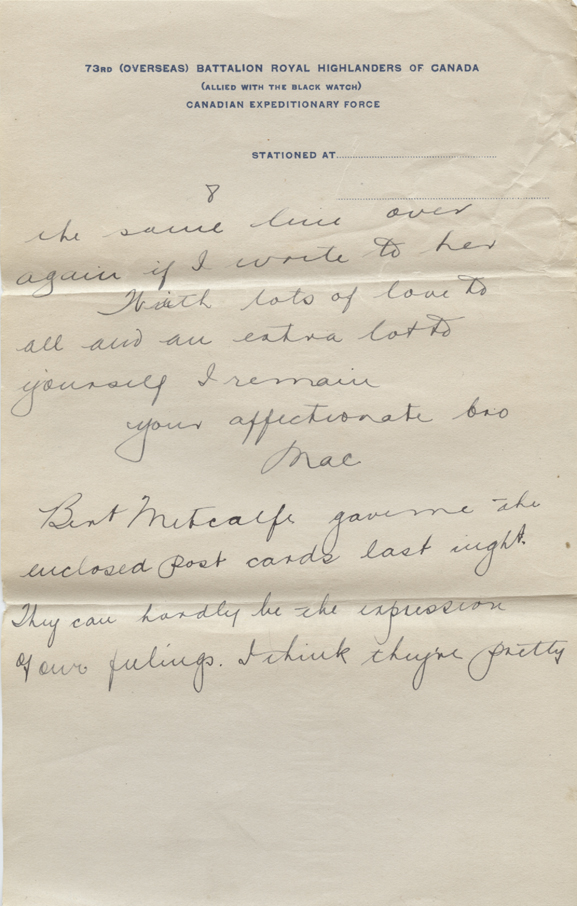 73RD (OVERSEAS) BATTALION ROYAL HIGHLANDERS OF CANADA
(ALLIED WITH THE BLACK WATCH)
CANADIAN EXPEDITIONARY FORCE
STATIONED AT
8
the same line over
again if I write to her
With lots of love to
all and an extra lot to
yourself I remain
your affectionate bro
Mac
Bert Metcalfe gave me the
enclosed post cards last night.
They can hardly be the expression
of our feelings. I think they're pretty